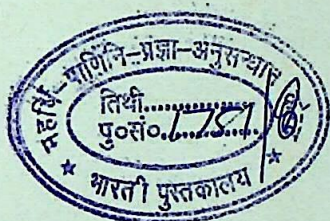 महर्षि-पाणिनि-प्रज्ञा-अनुसन्धान
तिथी..............
पु०सं०.1781
★ भारती पुस्तकालय ★